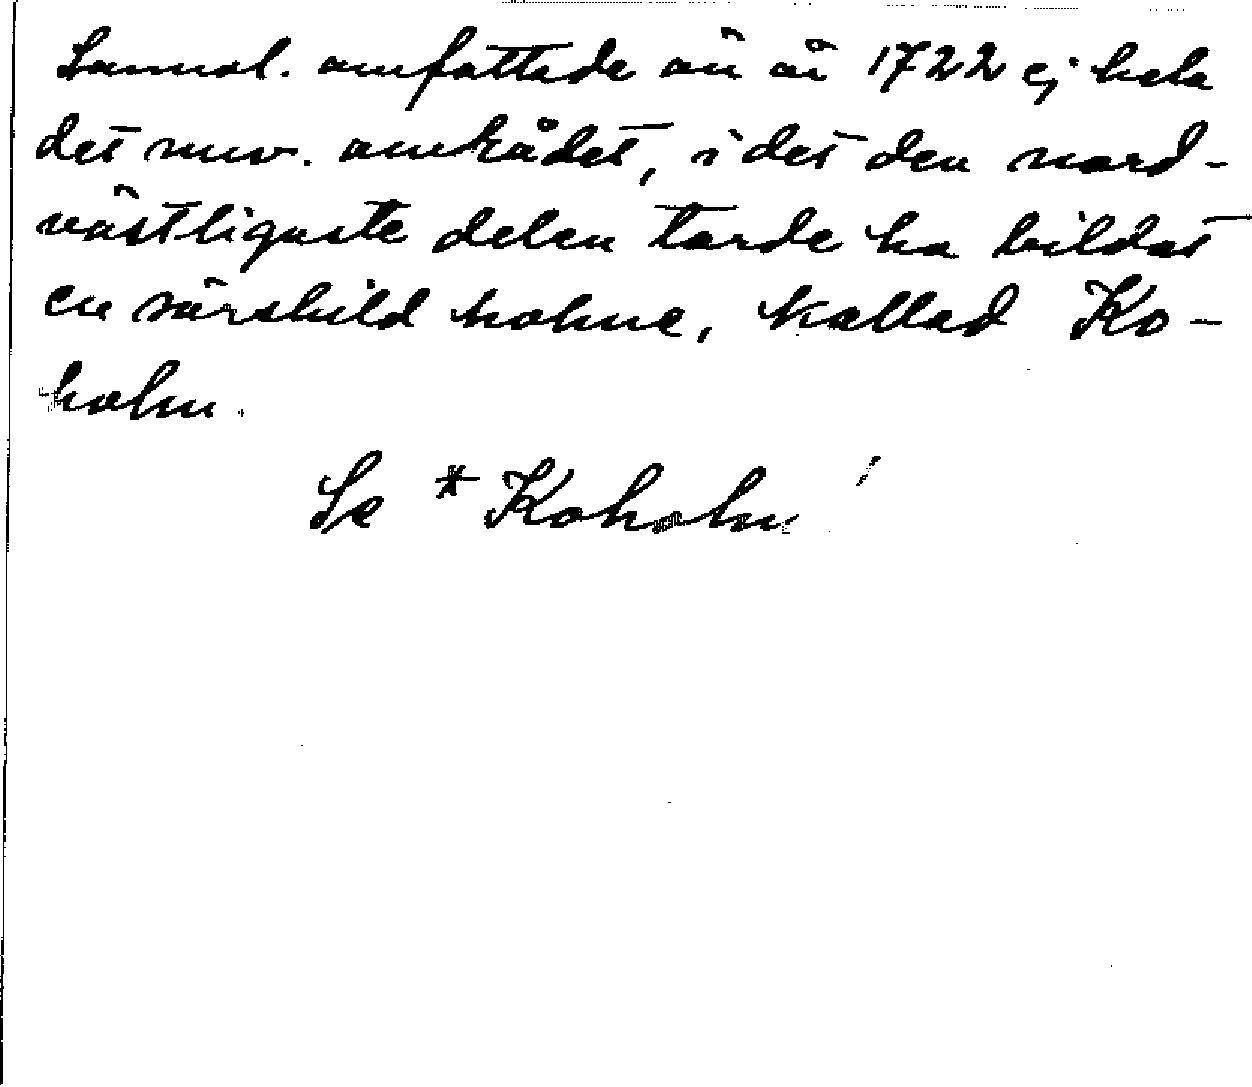 Sannol. omfattade än år 1722 ej hela
det nuv. området, i det den nord-
västligaste delen torde ha bildat
en särskild holme, kallad Ko-
holm.
Se * Koholm!